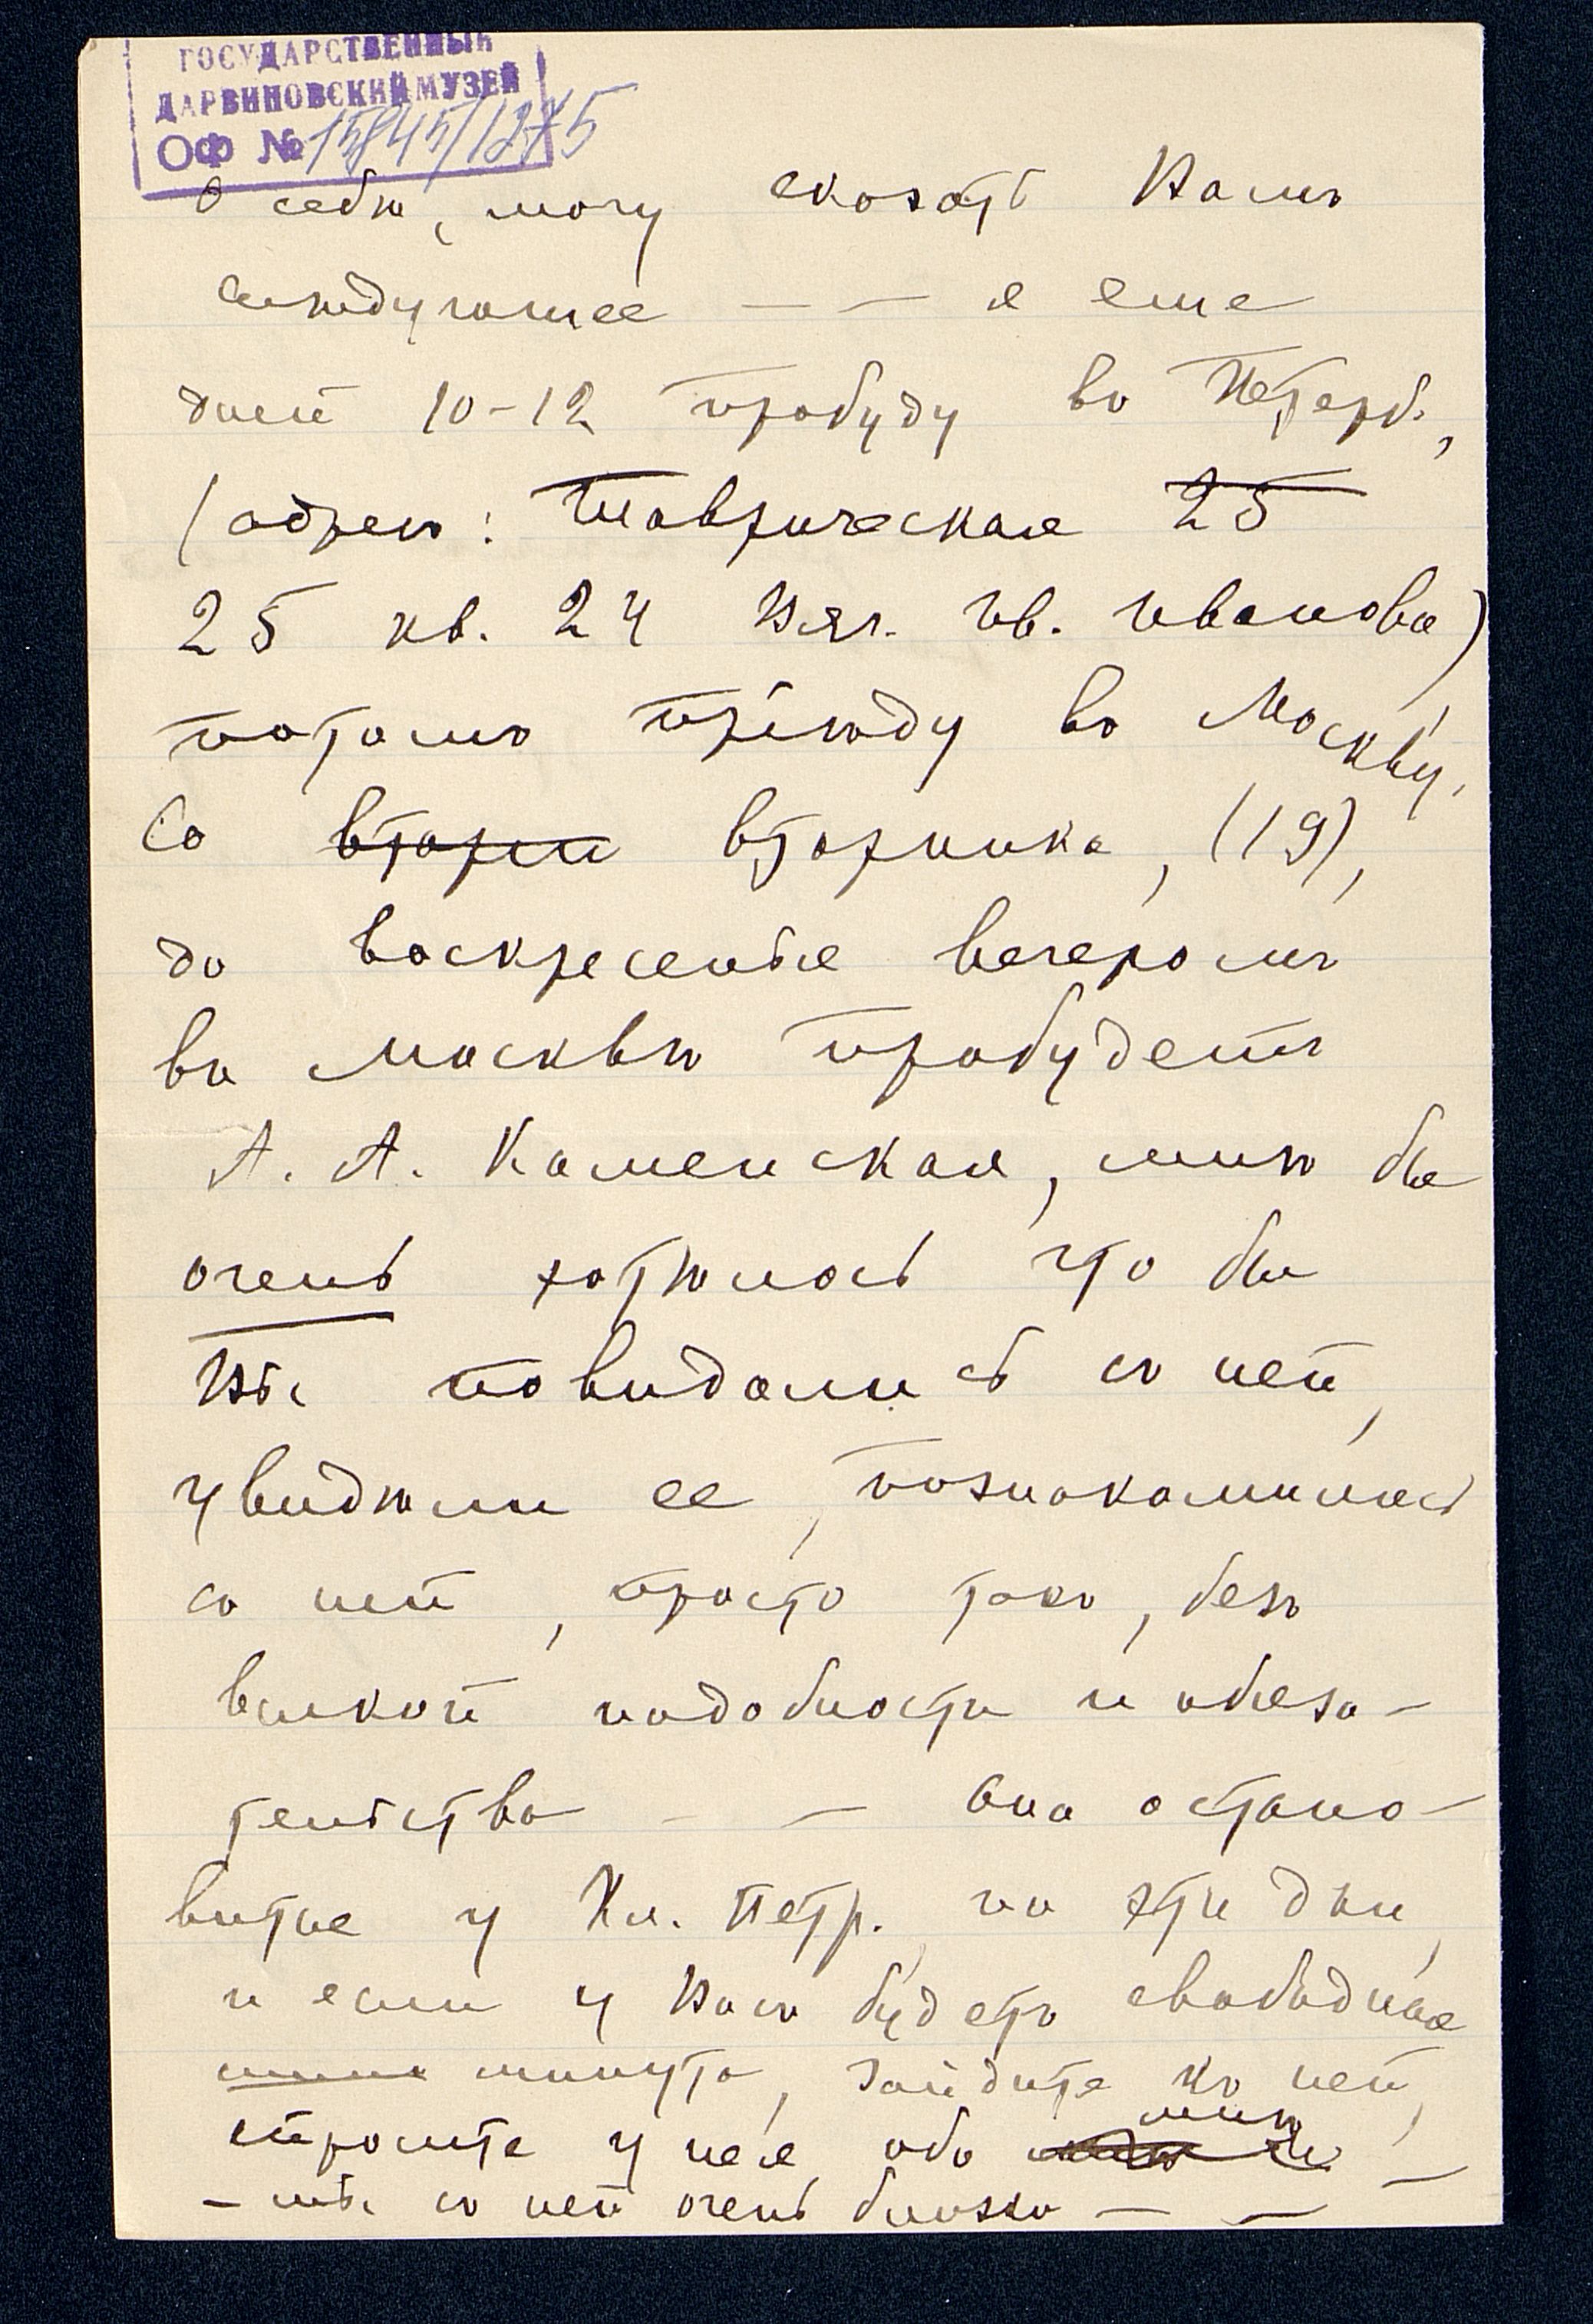 ГОСУДАРСТВЕННЫЙ
ДАРВИНОВСКИЙ МУЗЕЙ
ОФ № 15845/1275
О себѣ, могу сказать Вамъ
слѣдующее — — я еще
дней 10-12 пробуду въ Петерб.,
(адресъ: Таврическая 25
25 кв. 24 Вяч. Ив. Иванова)
потомъ прiѣду въ Москву.
Со вторни вторника, (19),
до воскресенья вечеромъ
въ Москвѣ пробудетъ
А. А. Каменская, мнѣ бы
очень хотѣлось что бы
Вы повидались съ ней,
увидѣли ее, познакомились
съ ней, просто такъ, безъ
всякой надобности и обяза-
тельства — — Она остано-
вится у Кл. Петр. на эти дни,
и если у Васъ будетъ свободная
минута, зайдите къ ней,
спросите у нея обо мнѣ —
— мы съ ней очень близко — —